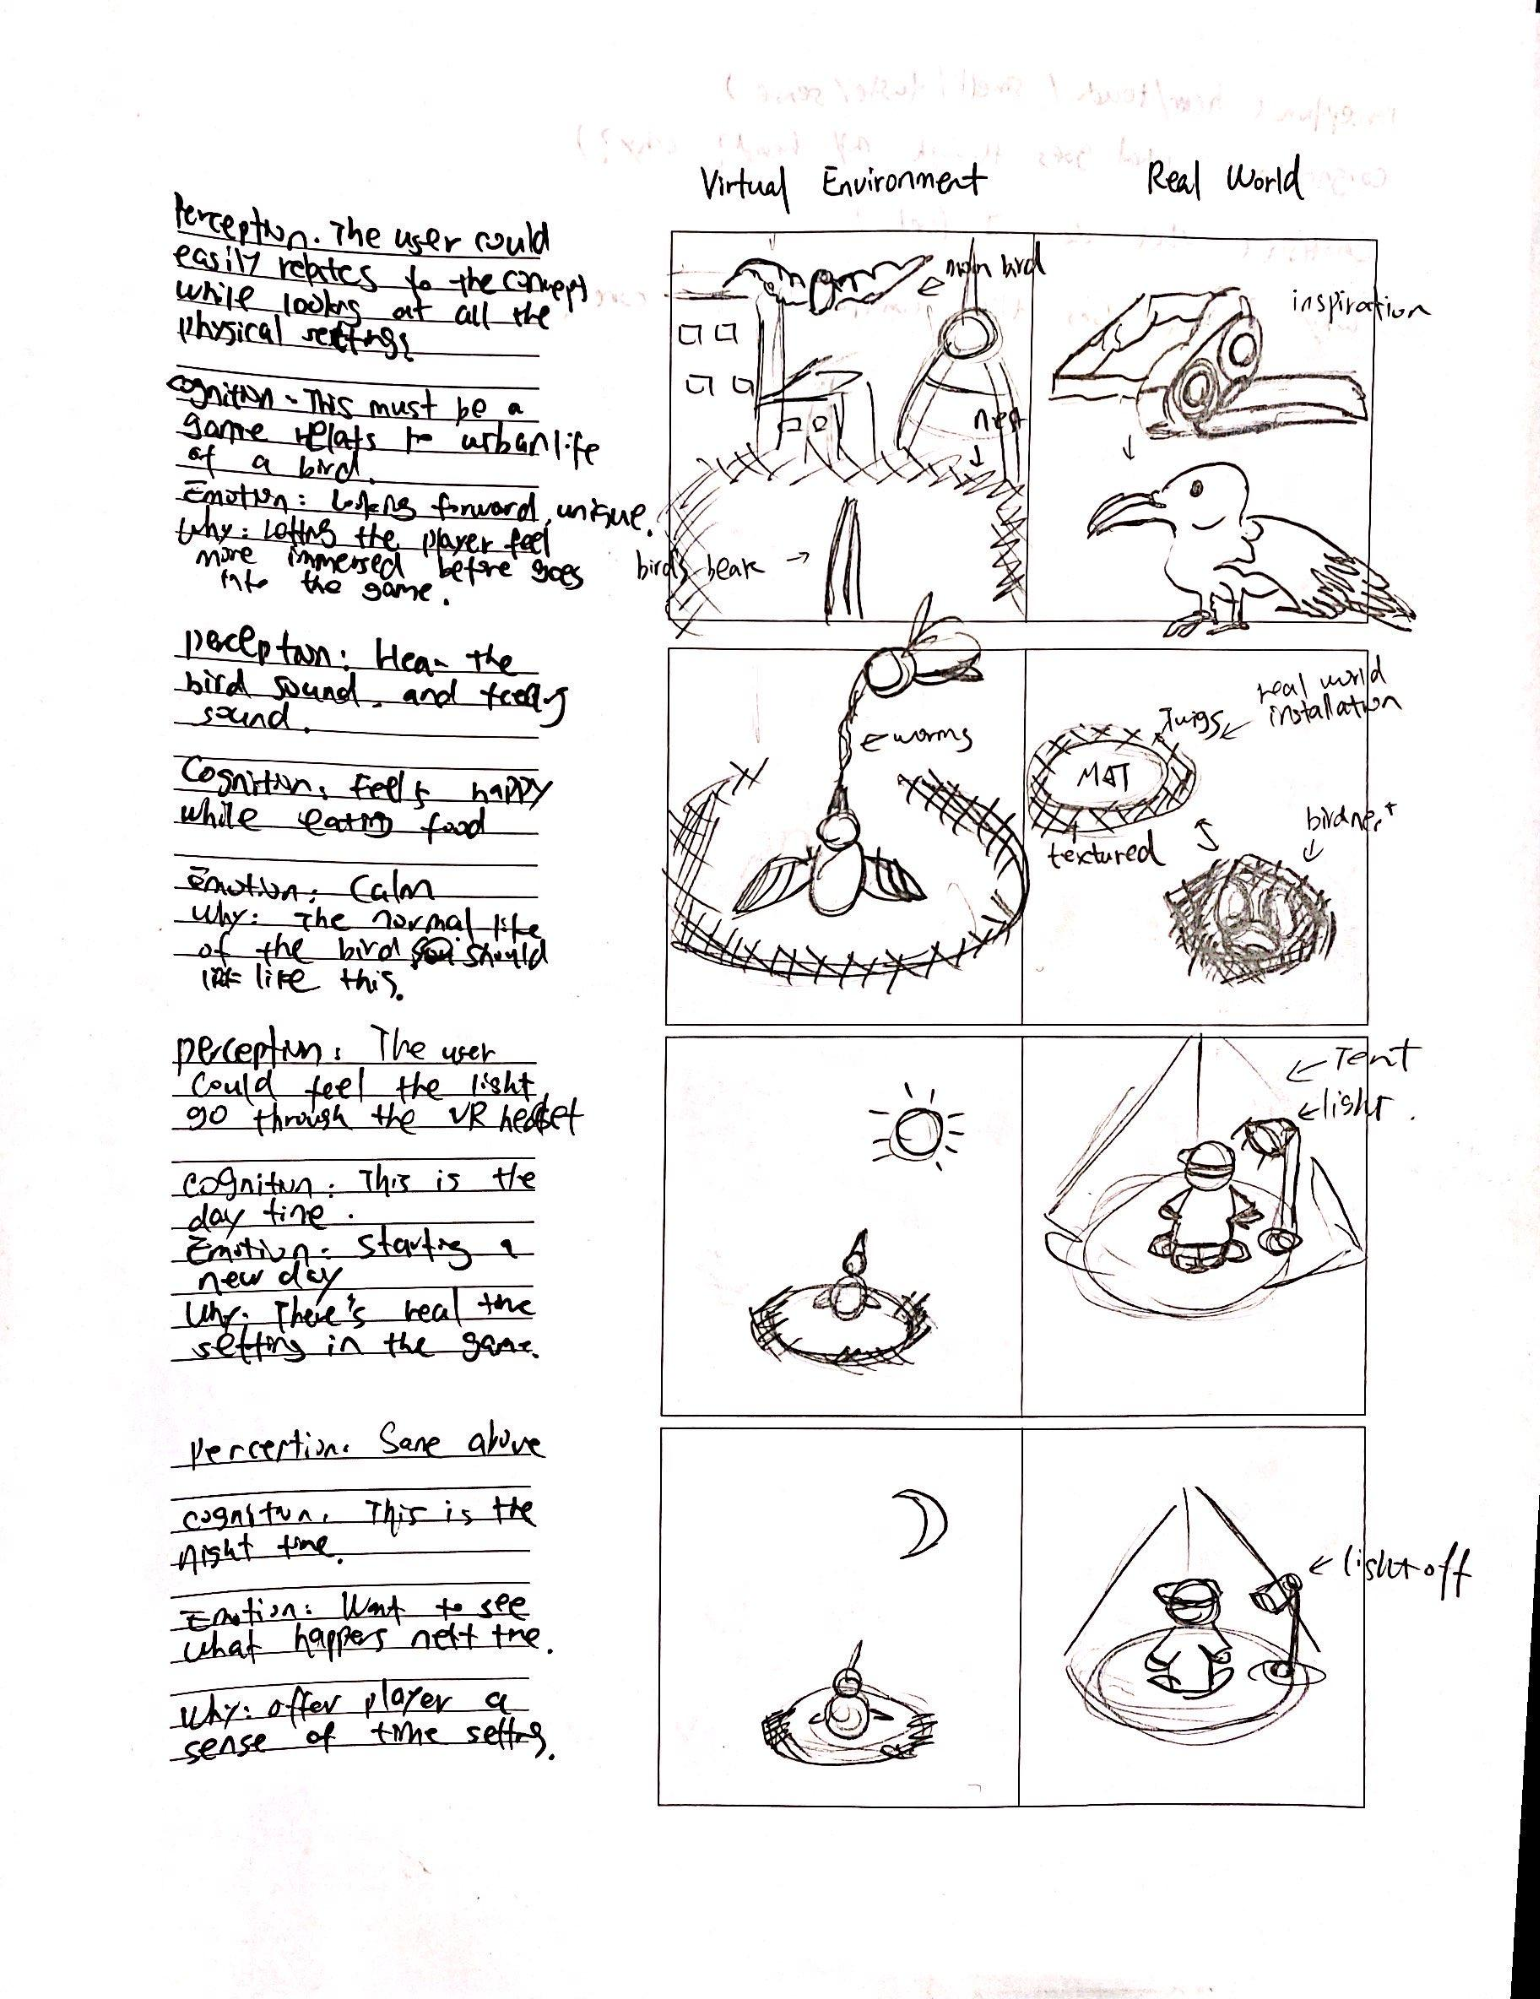 Virtual Environment
Real World
Perception. The user could
easily relates to the concept
while looking at all the
physical settings
cognition - This must be a
game relats to urban life
of a bird.
Emotion: Looking forward, unique.
Why: Letting the player feel
more immersed before goes
into the game.
mom bird
nest
bird's beak →
inspiration
perception: Hear the
bird sound, and feeding
sound.
Cognition: Feels happy
while eating food
Emotion: Calm
Why: The normal life
of the bird should
like this.
worms
real world
installation
Twigs
MAT
textured
birdnest
perception: The user
could feel the light
go through the VR headset
cognition: This is the
day time.
Emotion: Starting a
new day
Why: There's real time
setting in the game.
Tent
light.
Perception: Same above
cognition: This is the
night time.
Emotion: Want to see
what happens next time.
Why: offer player a
sense of time setting.
light off